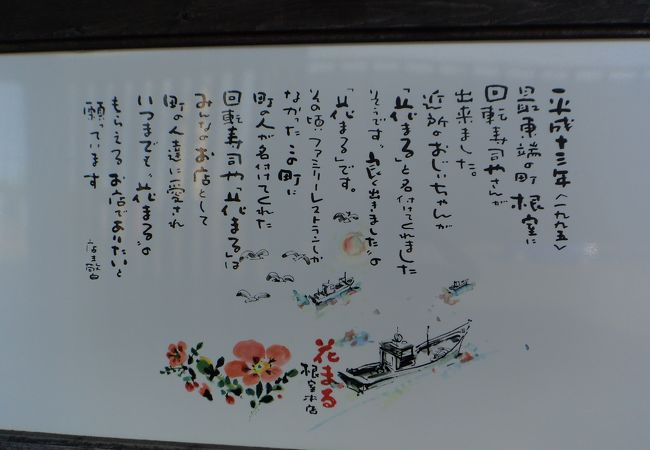 平成十三年〈一九九五〉
最東端の町 根室に
回転寿司やさんが
出来ました。
近所のおじいちゃんが
「花まる」と名付けてくれました
そうです〝良く出きました〟の
「花まる」です。
その頃、ファミリーレストランしか
なかったこの町に
町の人が名付けてくれた
回転寿司や〝花まる〟は
みんなのお店として
町の人達に愛され
いつまでも〝花まる〟の
もらえるお店でありたいと
願っています
店主敬白
花まる
根室本店